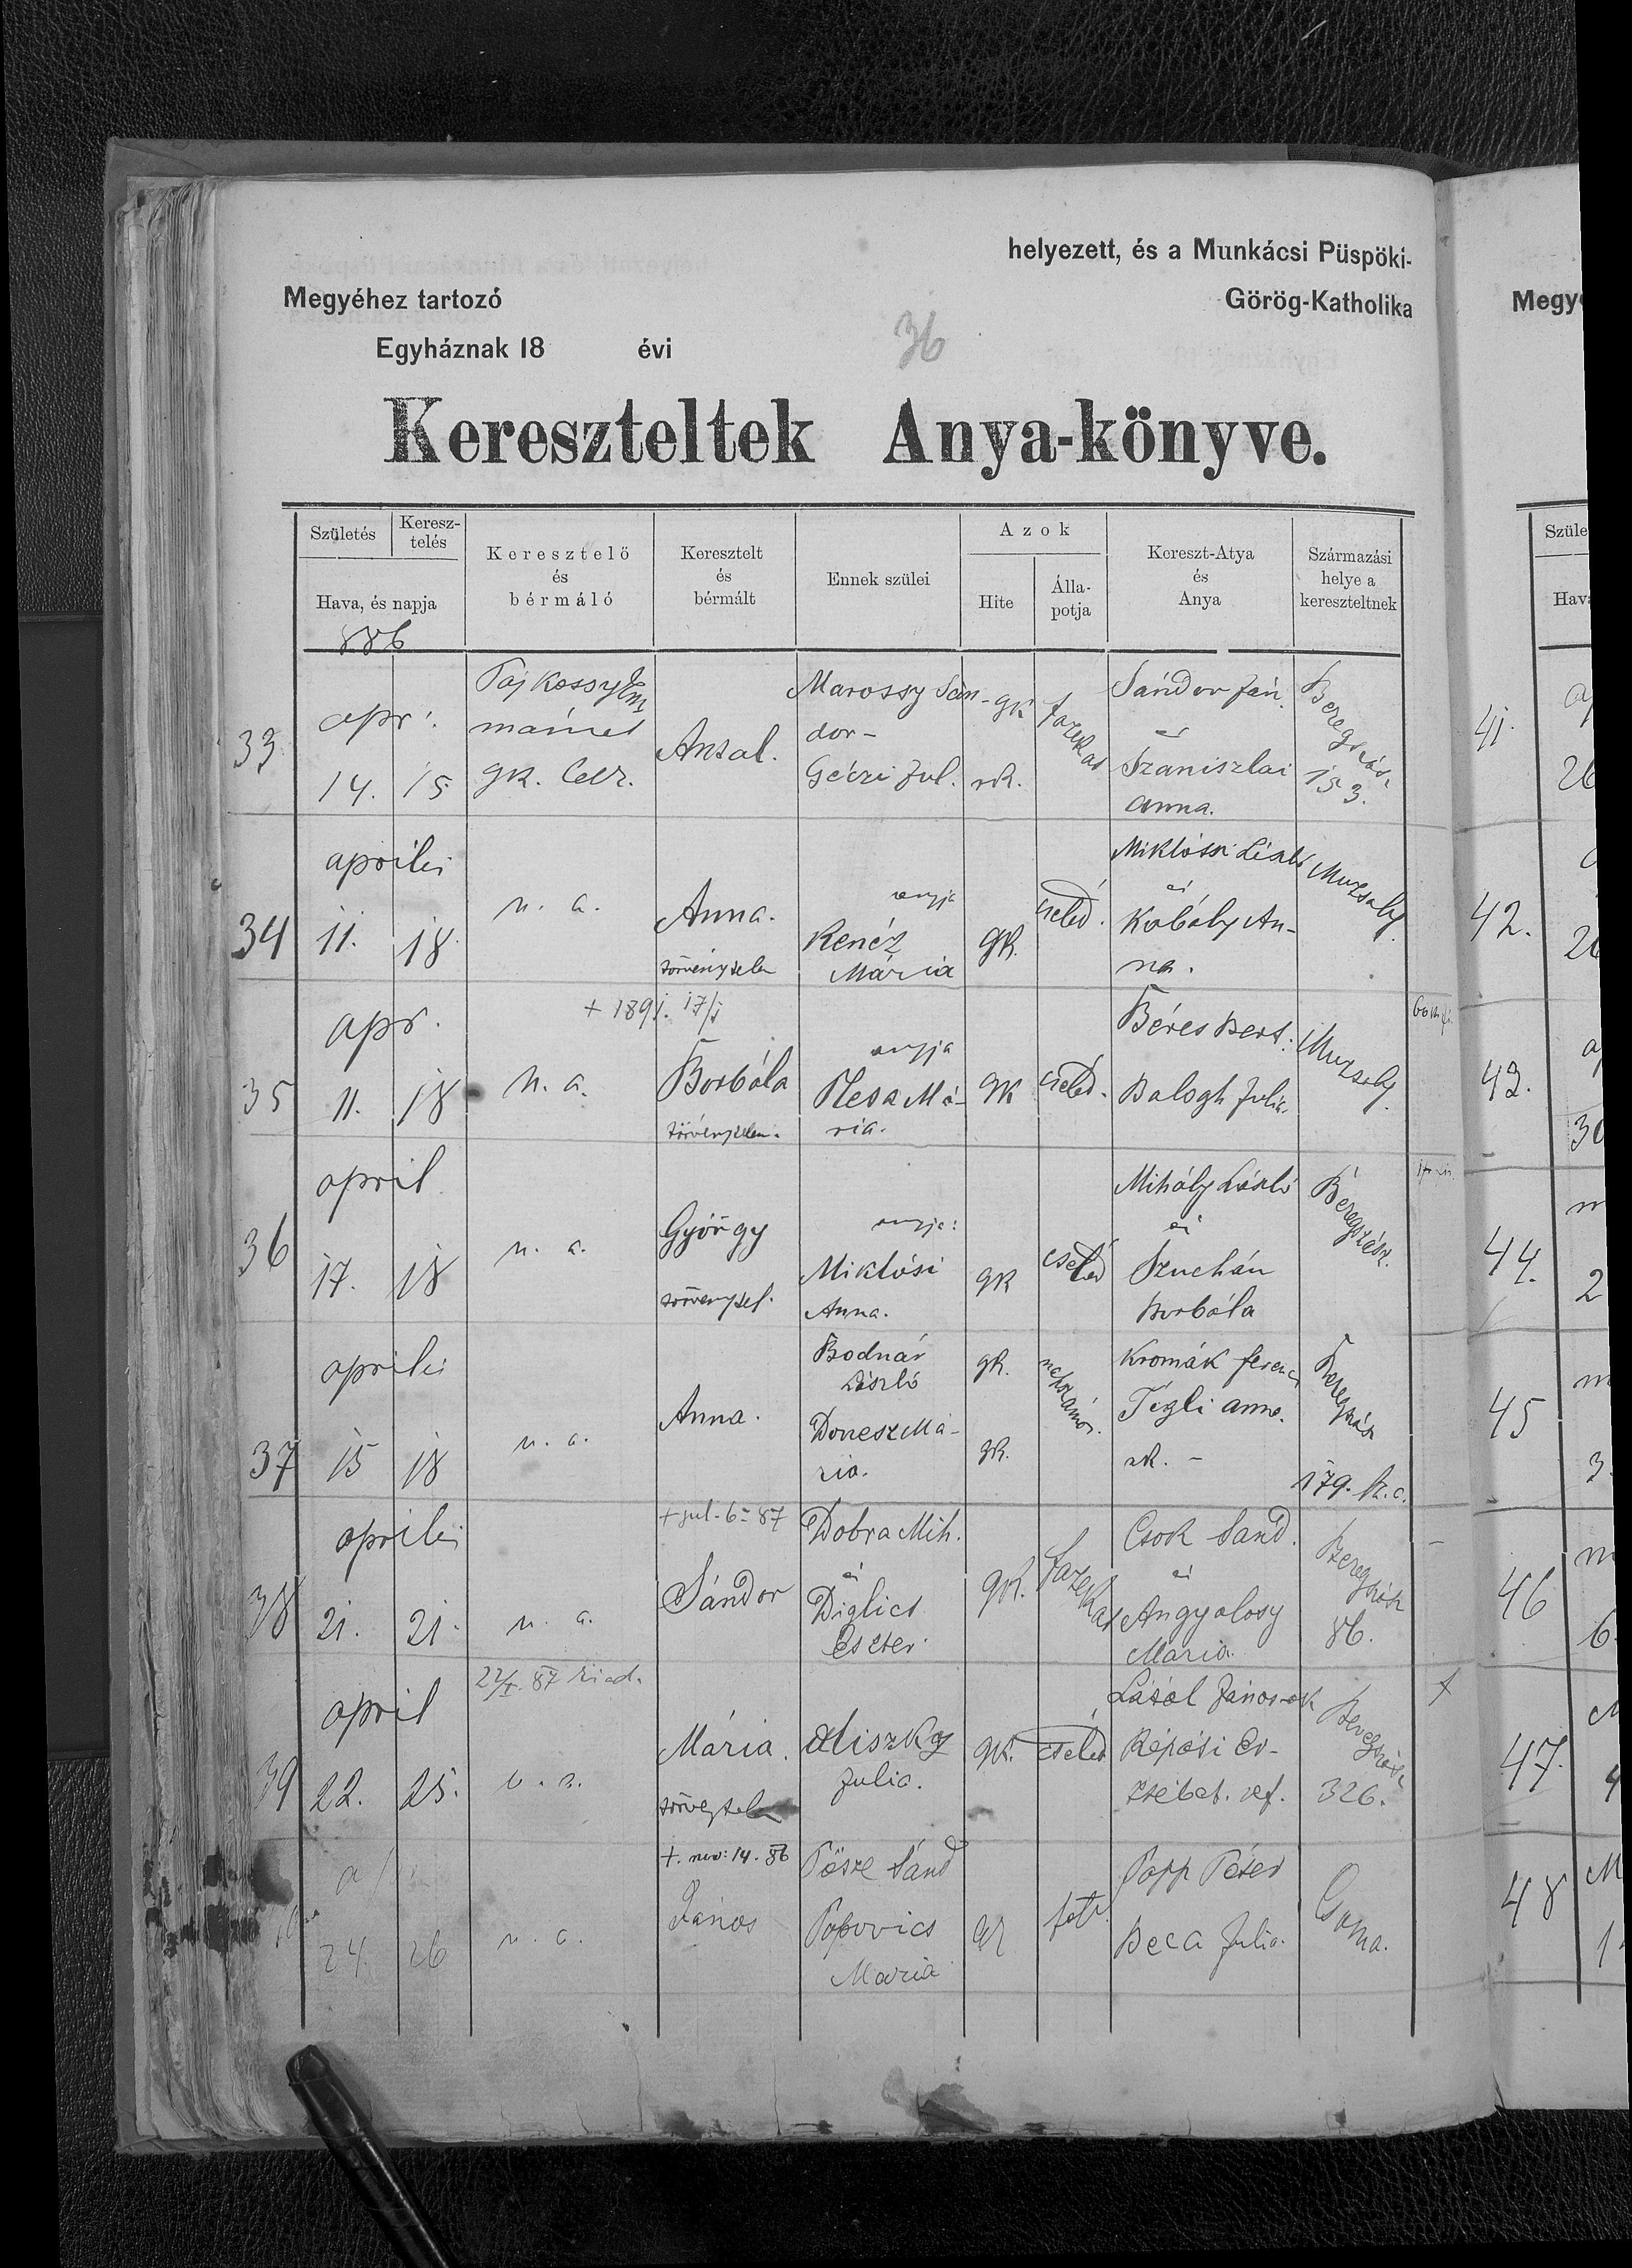 helyezett, és a Munkácsi Püspöki-
Megyéhez tartozó Görög-Katholika
Egyháznak 18 évi
36
Kereszteltek Anya-könyve.
Születés
Keresz-
telés
Hava, és napja
Keresztelő
és
bérmáló
Keresztelt
és
bérmált
Ennek szülei
Azok
Hite
Álla-
potja
Kereszt-Atya
és
Anya
Származási
helye a
kereszteltnek
886
33
apr.
14. 15
gk.
Antal.
Marossy Sán-
dor-
Géczi Jul.
gk
rk.
fazekas
Sándor Ján.
és
Szaniszlai
Anna.
Beregszász
153.
34
aprilis
11. 18
u. a.
Anna.
törvénytelen
anyja
Kenéz
Mária
gk.
cseled.
Miklóssi László
és
Kóbály An-
na.
Muzsaly.
35
apr.
11. 18
u. a.
+ 1891. 17/1
Borbála
törvénytelen.
anyja
Plesa Má-
ria.
gk
cseled.
Béres Bert.
Balogh Julia.
Muzsaly.
36
april
17. 18
u. a.
György
törvénytel.
anyja:
Miklósi
Anna.
gk
cseléd
Mihály László
és
Szuchán
Borbála
Beregszász.
37
aprilis
15 18
u. a.
Anna.
Bodnár
László
Donesz Má-
ria.
gk.
gk.
napszámos.
Kromák Ferencz
Tégli Anna.
rk. -
Beregszász
179.
38
aprilis
21. 21.
u. a.
+ jul. 6= 87
Sándor
Dobra Mih.
és
Diglics
Eszter.
gk.
fazekas
Csok Sand.
és
Angyalosy
Maria.
Beregszász
86.
39
april
22. 25.
22/X. 87 kiad.
u. a.
Mária.
törvénytelen
Miszky
Julia.
gk.
cseled
Répási Er-
zsébet. ref.
Beregszász
326.
24. 26
u. a.
+. nov: 14. 86
János
Pősze Sánd
Popovics
Maria
gk
Papp Péter
Beca Julia.
41.
42.
43.
44.
45
46
47.
48
Megy
Szüle